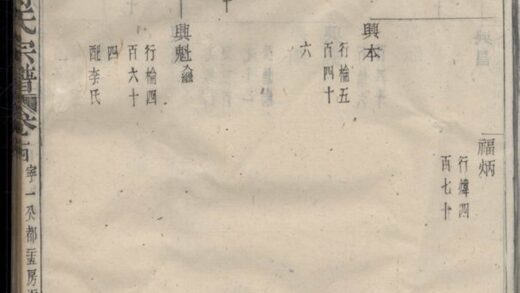 福炳
行煒四
百七十
興本
行棆五
百四十
六
興魁
行棆四
百六十
四
配李氏
氏宗譜
卷十四
寧一公都
房